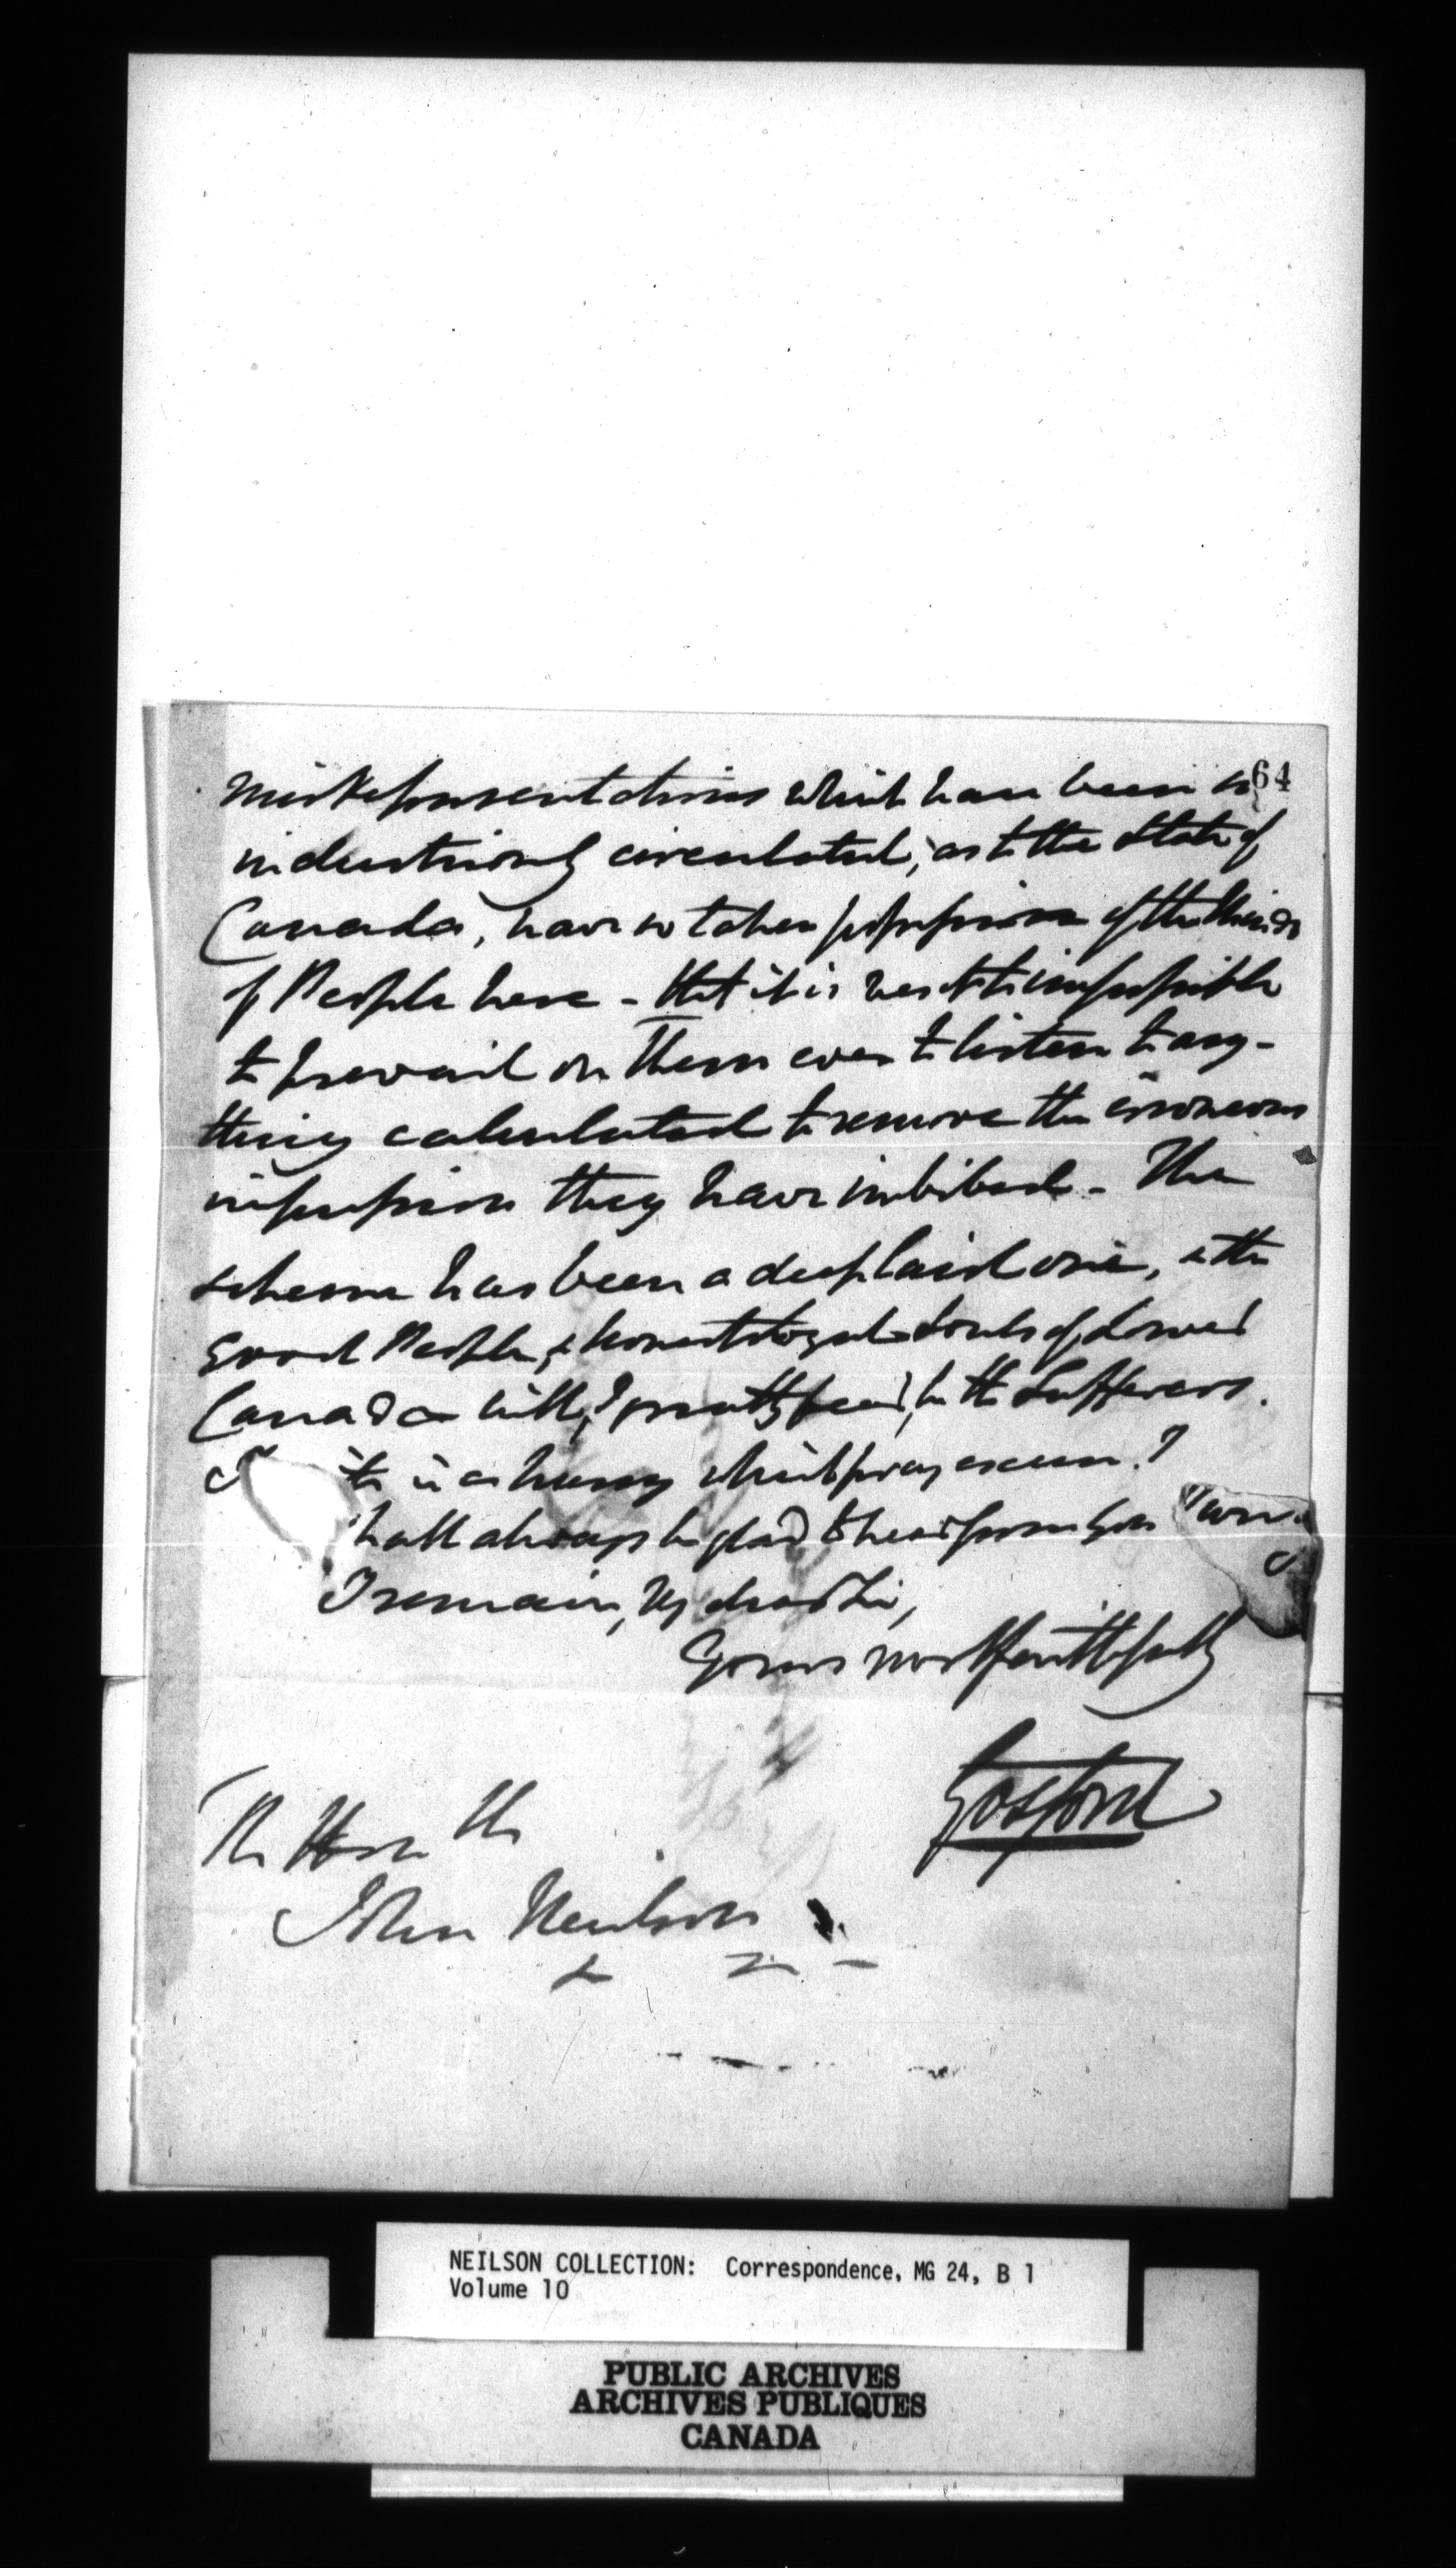 64
misrepresentations which have been so
industriously circulated, as to the State of
Canada, have so taken possession of the Minds
of People here - that it is next to impossible
to prevail on them even to listen to any-
thing calculated to remove the erroneous
impression they have imbibed - The
scheme has been a deep laid one, & the
good People, & honest loyal Souls of Lower
Canada will, I greatly fear, be the Sufferers.
is in a hurry which pray excuse. I
hall always be glad to hear from you
I remain, My dear Sir,
Yours most faithfully
Gosford
The Hon ble
John Neilson
& &c -
NEILSON COLLECTION: Correspondence, MG 24, B 1
Volume 10
PUBLIC ARCHIVES
ARCHIVES PUBLIQUES
CANADA